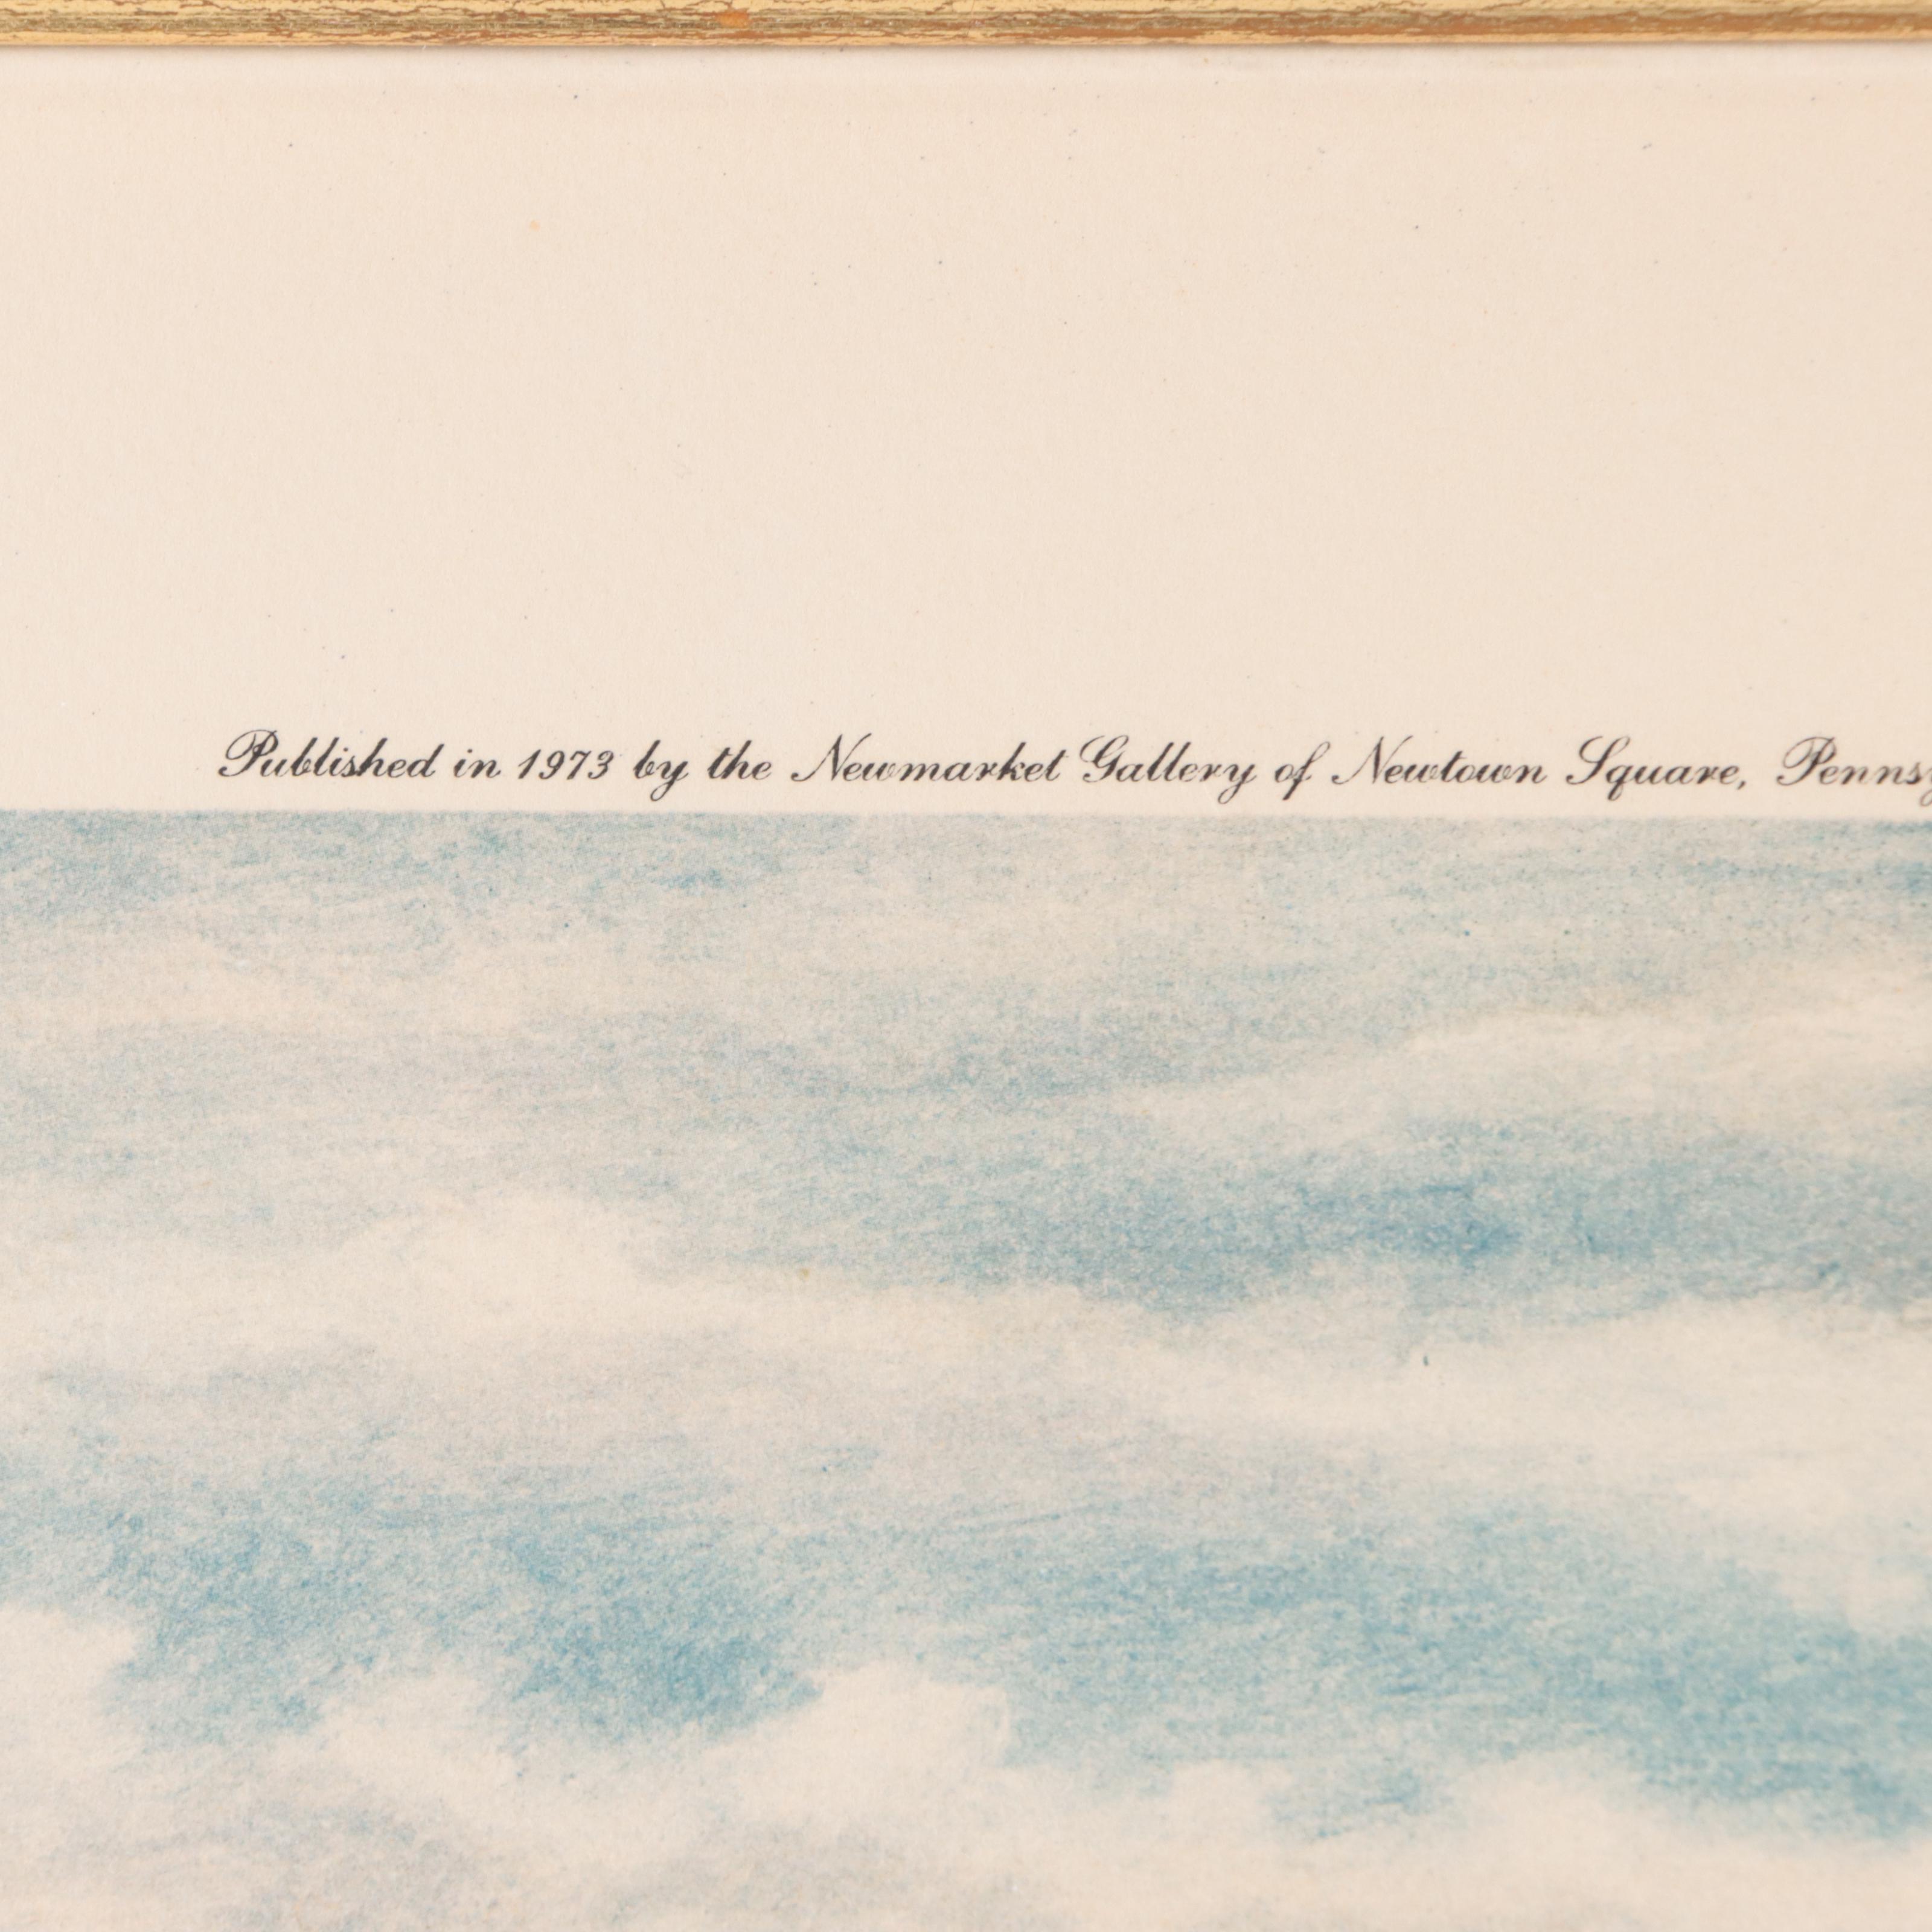 Published in 1973 by the Newmarket Gallery of Newtown Square, Pennsy